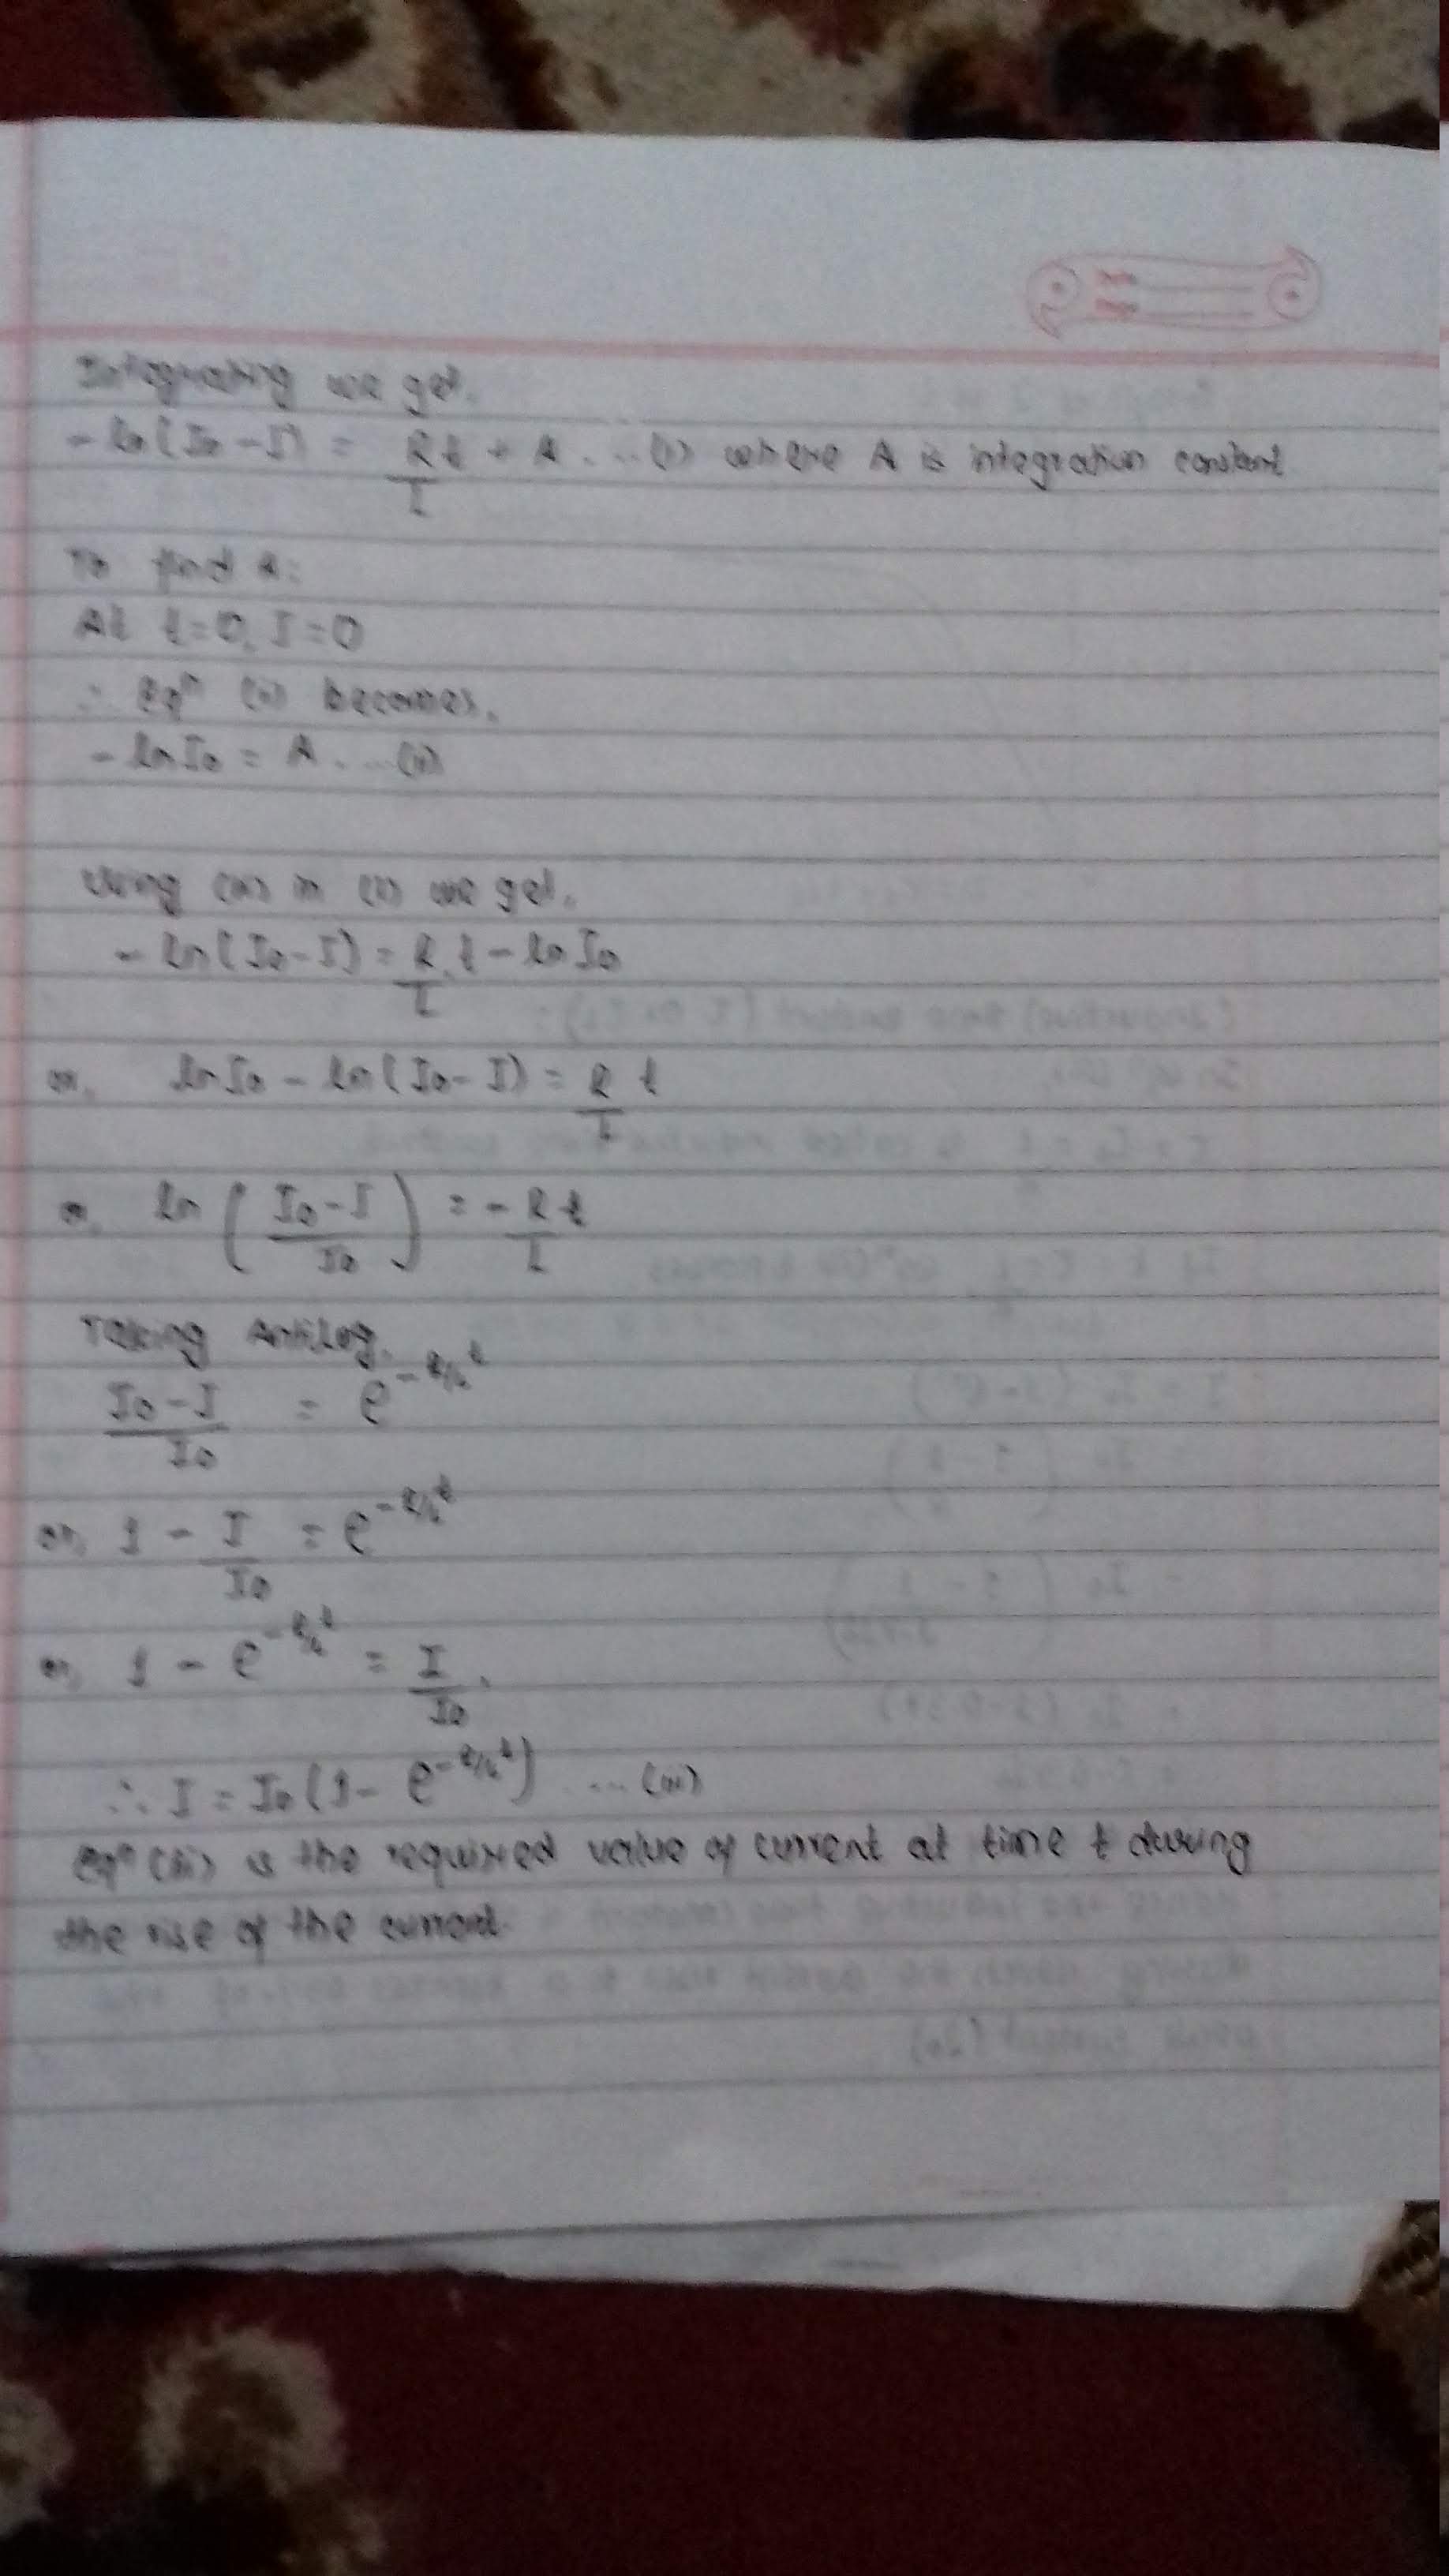 Integrating we get,
- ln(I₀-I) = R/L t + A ...(i) where A is integration constant
To find A:
At t=0, I=0
∴ Eqⁿ (i) becomes,
- ln I₀ = A ...(ii)
Using (ii) in (i) we get,
- ln(I₀-I) = R/L t - ln I₀
or, ln I₀ - ln(I₀-I) = R/L t
or, ln ( I₀-I / I₀ ) = - R/L t
Taking Antilog,
I₀-I / I₀ = e^-R/L t
or, 1 - I/I₀ = e^-R/L t
or, 1 - e^-R/L t = I/I₀.
∴ I = I₀(1- e^-R/L t) ...(iii)
Eqⁿ (iii) is the required value of current at time t during
the rise of the current.